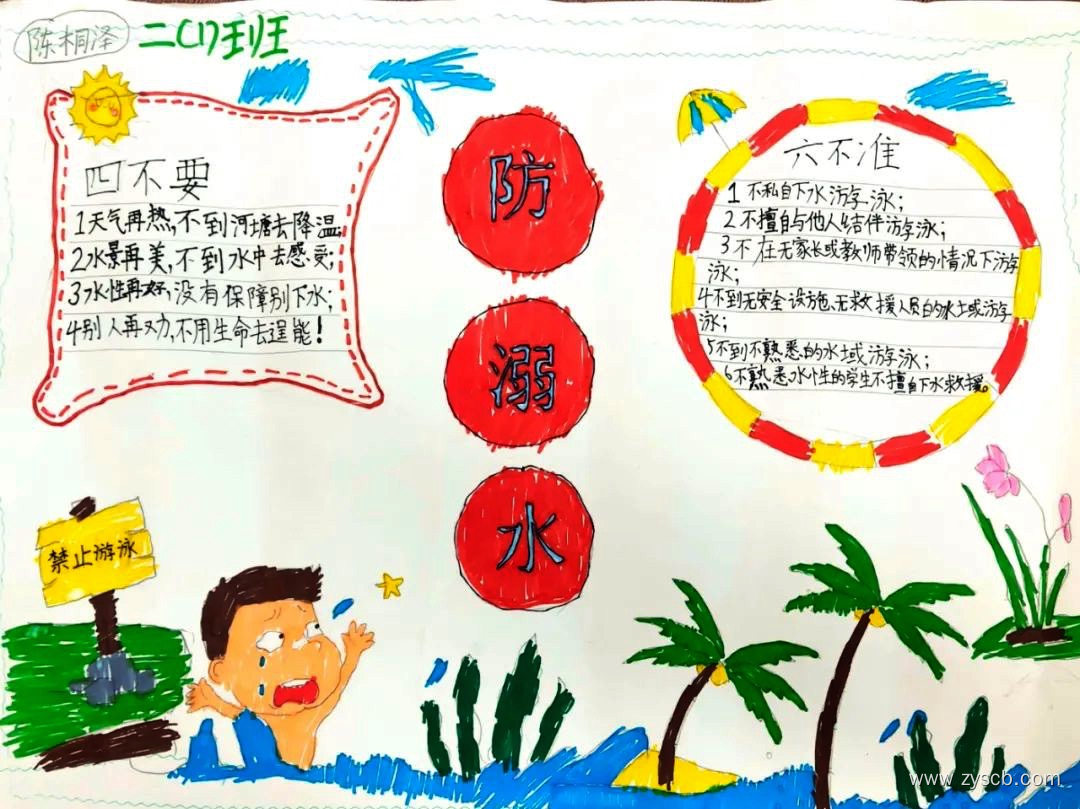 陈桐泽
二(1)班
四不要
1天气再热,不到河塘去降温;
2水景再美,不到水中去感受;
3水性再好,没有保障别下水;
4别人再劝,不用生命去逞能!
防
溺
水
六不准
1 不私自下水游泳;
2 不擅自与他人结伴游泳;
3 不在无家长或教师带领的情况下游
泳;
4不到无安全设施、无救援人员的水域游
泳;
5不到不熟悉的水域游泳;
6不熟悉水性的学生不擅自下水救援。
禁止游泳
www.zyscb.com